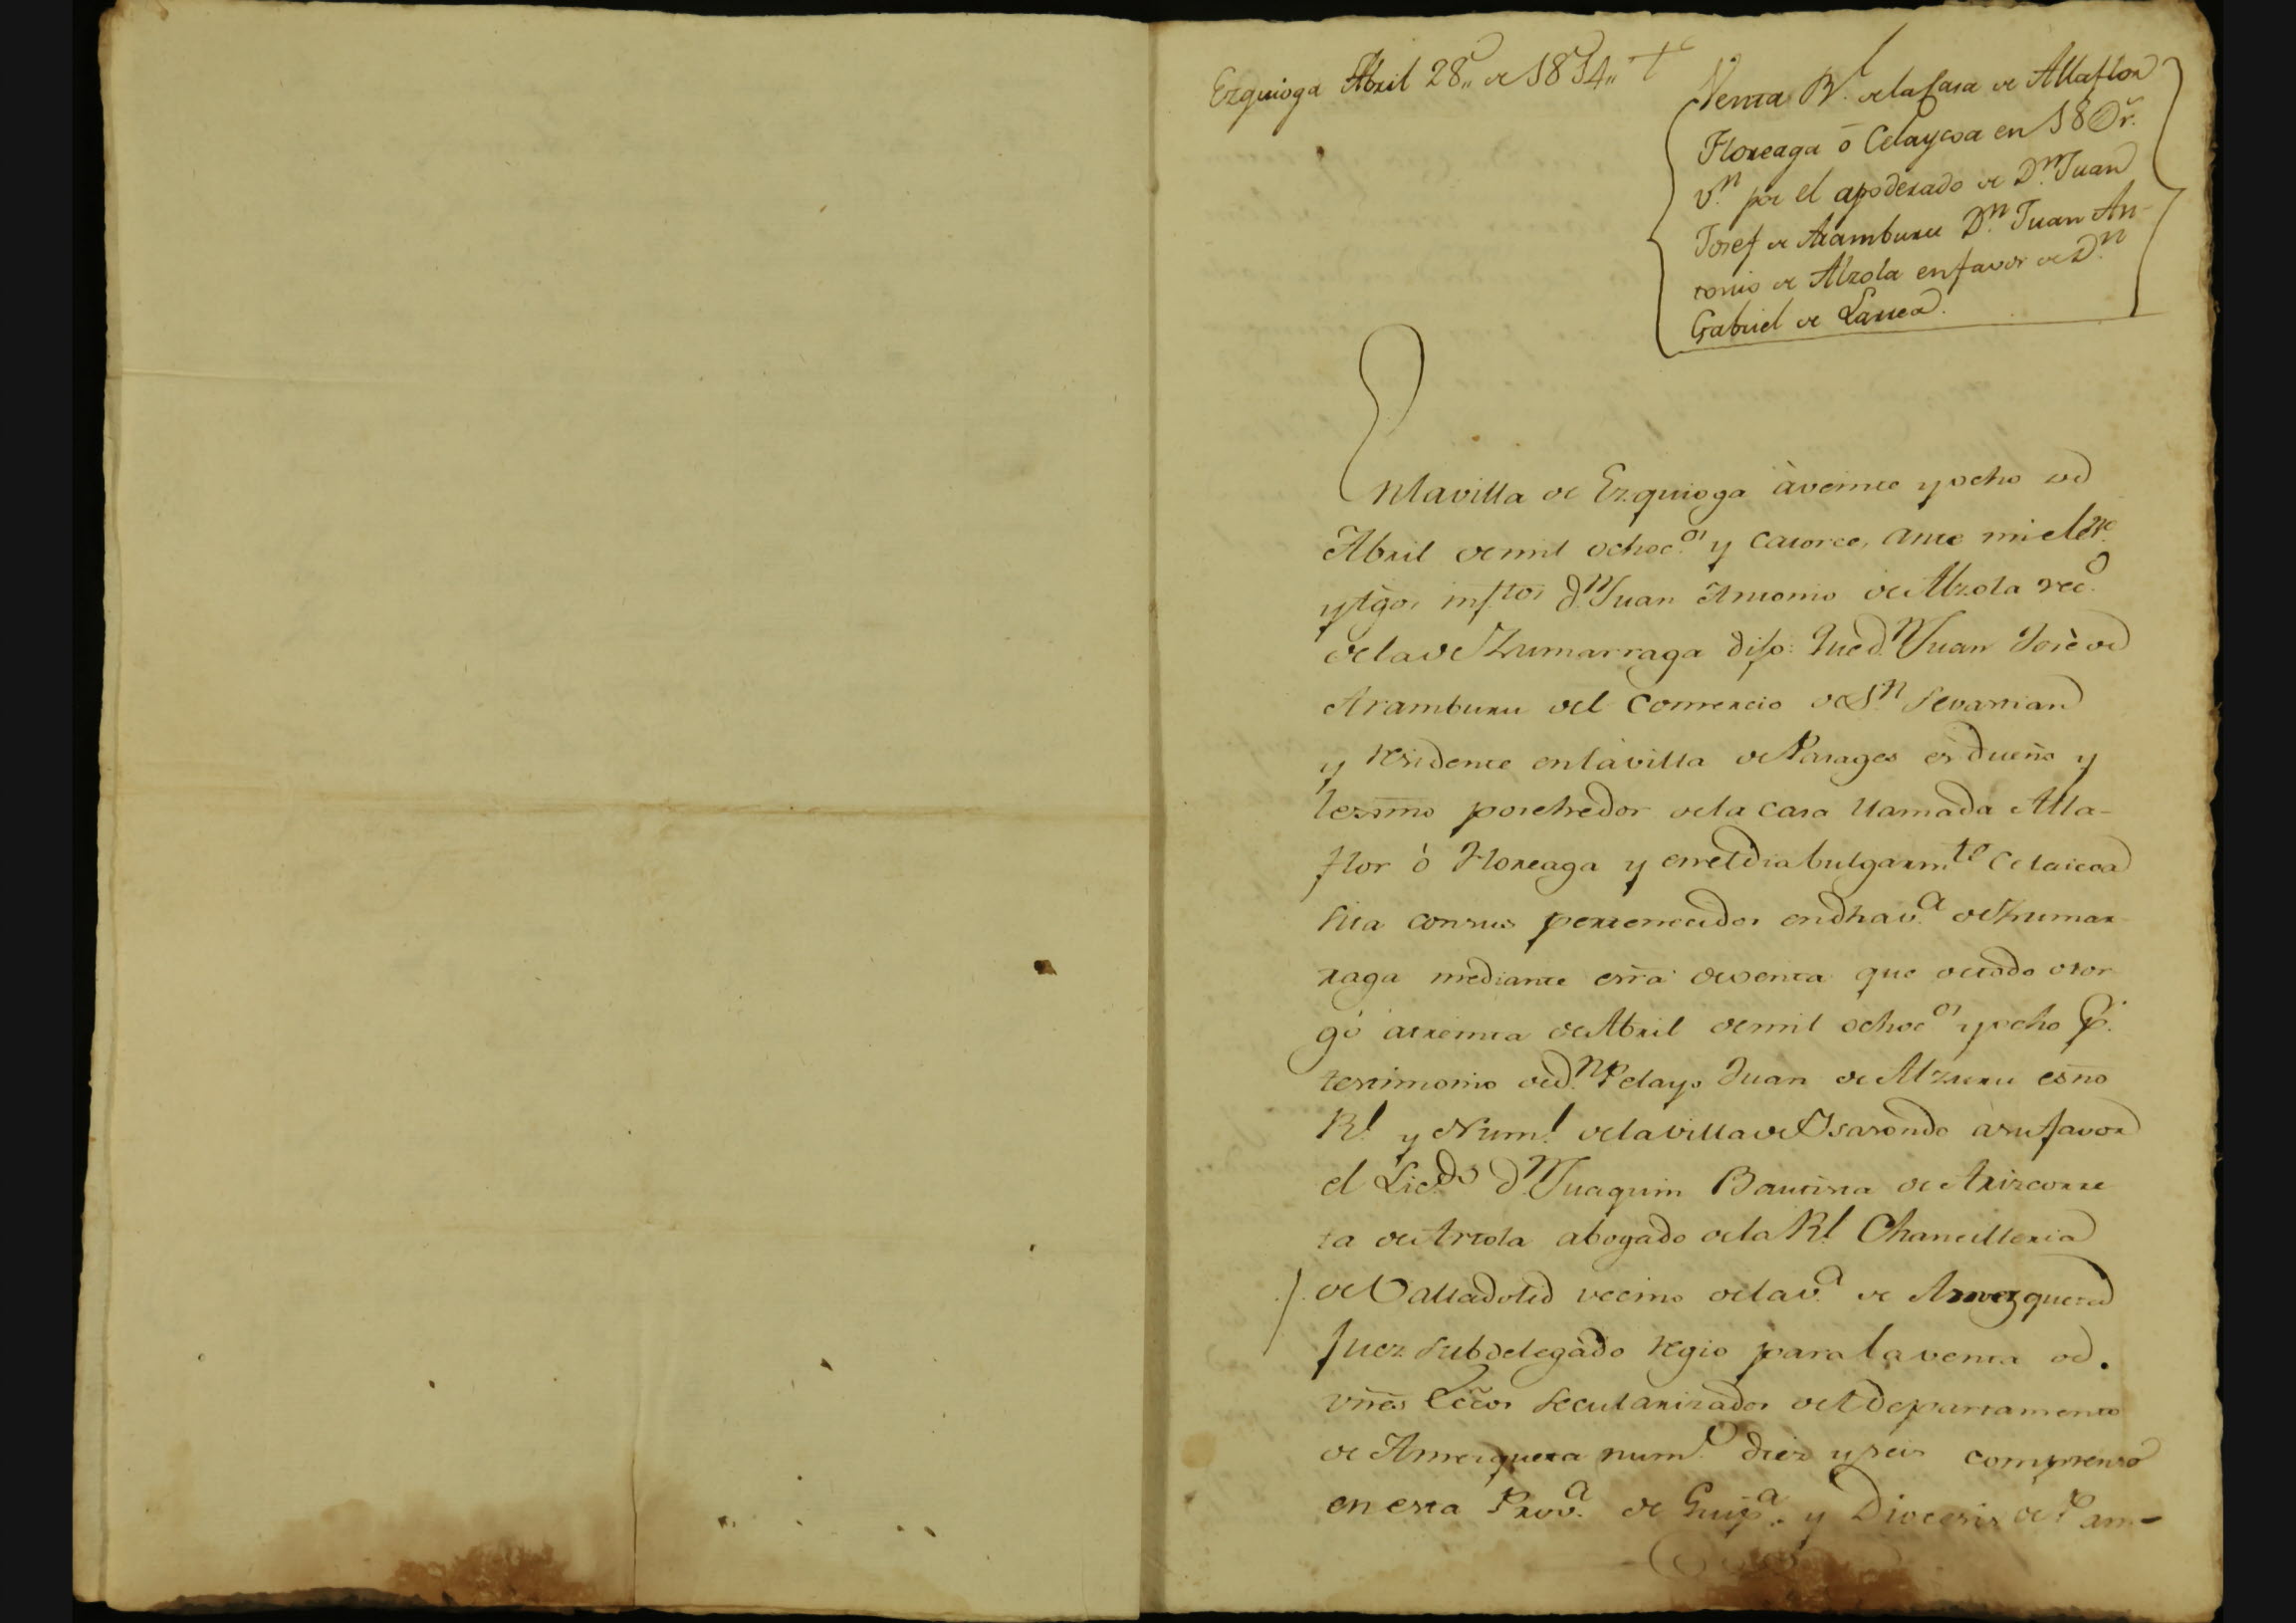 Ezquioga Abril 28,, de 1814,, +
Venta Rl. dela Casa de Altaflor
Floreaga ó Celaycoa en 18 Dr.
vn. por el apoderado de Dn. Juan
Josef de Aramburu Dn. Juan An-
tonio de Alzola enfavor de Dn.
Gabriel de Larrea.
Enlavilla de Ezquioga àveinte yocho de
Abril demil ochoc.os y catorce, ante mi el
ytg̃os infr̃tos dn. Juan Antonio de Alzola vec.o
delade Zumarraga dijo: Qued.n Juan Josè de
Aramburu del Comercio deSn. Sevastian
y residente enlavilla dePasages es dueño y
lex̃mo posehedor dela casa llamada Alta-
flor ò Floreaga y enneldia bulgarm.te Celaicoa
sita consus pertenecidos endhav.a deZumar-
raga mediante esr̃a deventa que detodo otor
gò atreinta deAbril demil ochoc.os yocho p.r
testimonio ded.n Pelayo Juan de Alzuru esño
Rl. y Numl. delavilla deYsasondo asufavor
el Lic.do dn. Juaquin Bautista de Arizcorre
ta deArtola abogado dela Rl. Chancilleria
deValladolid vecino delav.a de Amezqueta
Juez subdelegado regio para laventa de
vñes Ecc̃os secularizados del departamento
de Amezqueta num.o diez yseis comprenso
en esta Prov.a de Guip.a y Diocesis dePam-